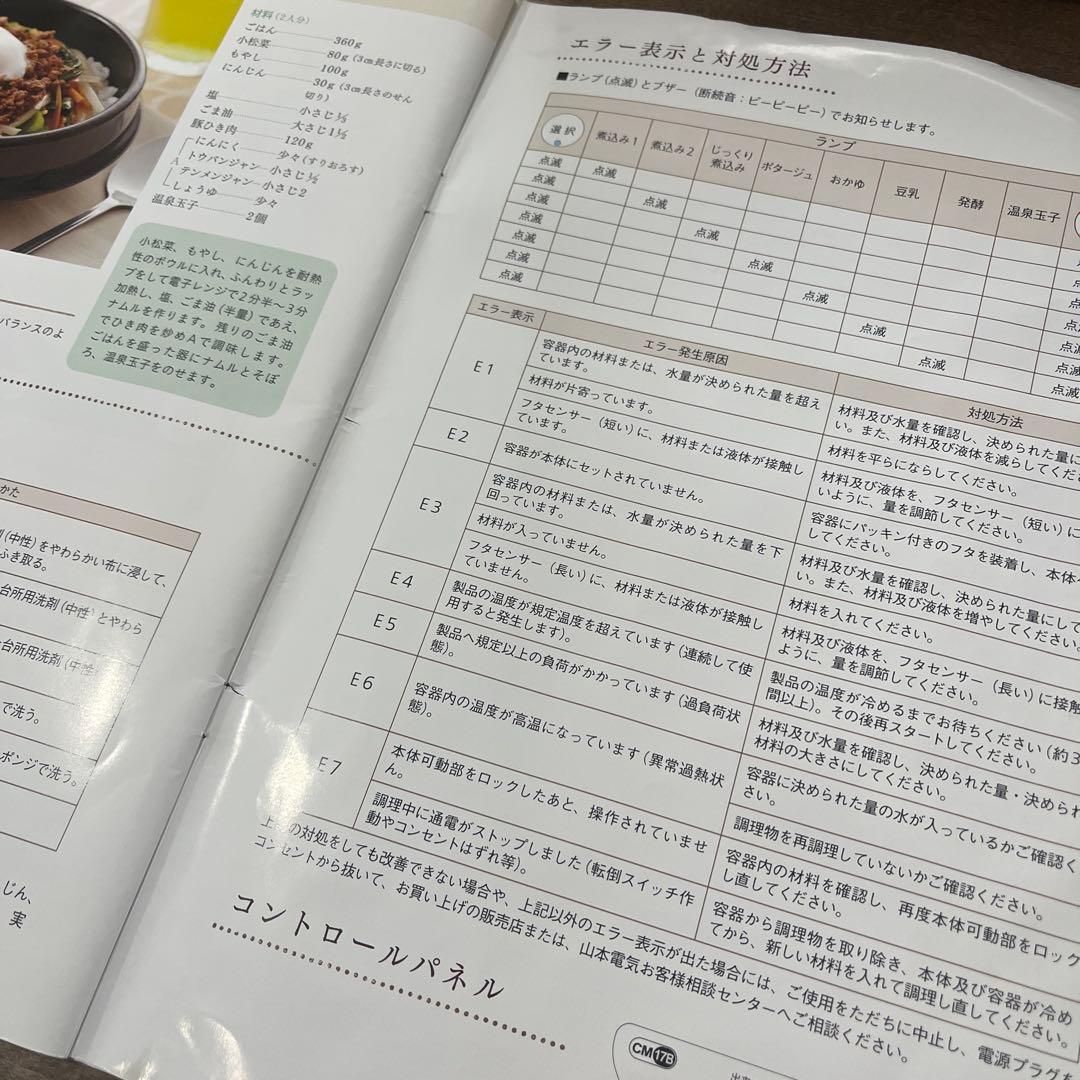 材料(2人分)
ごはん 360g
小松菜 80g(3cm長さに切る)
もやし 100g
にんじん 30g(3cm長さのせん
切り)
塩 小さじ⅓
ごま油 大さじ1½
豚ひき肉 120g
A
にんにく 少々(すりおろす)
トウバンジャン 小さじ½
テンメンジャン 小さじ2
しょうゆ 少々
温泉玉子 2個
小松菜、もやし、にんじんを耐熱
性のボウルに入れ、ふんわりとラッ
プをして電子レンジで2分半〜3分
加熱し、塩、ごま油(半量)であえ、
ナムルを作ります。残りのごま油
でひき肉を炒めAで調味します。
ごはんを盛った器にナムルとそぼ
ろ、温泉玉子をのせます。
バランスのよ
かた
(中性)をやわらかい布に浸して、
ふき取る。
台所用洗剤(中性)とやわら
台所用洗剤(中性
で洗う。
ポンジで洗う。
じん、
実
エラー表示と対処方法
■ランプ(点滅)とブザー(断続音:ピーピーピー)でお知らせします。
ランプ
選択 煮込み1 煮込み2 じっくり煮込み ポタージュ おかゆ 豆乳 発酵 温泉玉子
点滅 点滅
点滅 点滅
点滅 点滅
点滅 点滅
点滅 点滅
点滅 点滅
点滅 点滅
エラー表示 エラー発生原因 対処方法
E1
容器内の材料または、水量が決められた量を超え
ています。
材料及び水量を確認し、決められた量に
い。また、材料及び液体を減らしてくださ
材料が片寄っています。
材料を平らにならしてください。
フタセンサー(短い)に、材料または液体が接触し
ています。
材料及び液体を、フタセンサー(短い)に
いように、量を調節してください。
E2
容器が本体にセットされていません。
容器にパッキン付きのフタを装着し、本体
してください。
E3
容器内の材料または、水量が決められた量を下
回っています。
材料及び水量を確認し、決められた量にして
い。また、材料及び液体を増やしてください。
材料が入っていません。
材料を入れてください。
フタセンサー(長い)に、材料または液体が接触し
ていません。
材料及び液体を、フタセンサー(長い)に接触
ように、量を調節してください。
E4
製品の温度が規定温度を超えています(連続して使
用すると発生します)。
製品の温度が冷めるまでお待ちください(約3
間以上)。その後再スタートしてください。
E5
製品へ規定以上の負荷がかかっています(過負荷状
態)。
材料及び水量を確認し、決められた量・決められ
材料の大きさにしてください。
E6
容器内の温度が高温になっています(異常過熱状
態)。
容器に決められた量の水が入っているかご確認く
さい。
調理物を再調理していないかご確認ください。
E7
本体可動部をロックしたあと、操作されていませ
ん。
容器内の材料を確認し、再度本体可動部をロック
し直してください。
調理中に通電がストップしました(転倒スイッチ作
動やコンセントはずれ等)。
容器から調理物を取り除き、本体及び容器が冷め
てから、新しい材料を入れて調理し直してください。
上記の対処をしても改善できない場合や、上記以外のエラー表示が出た場合には、ご使用をただちに中止し、電源プラグを
コンセントから抜いて、お買い上げの販売店または、山本電気お客様相談センターへご相談ください。
コントロールパネル
CM 17B